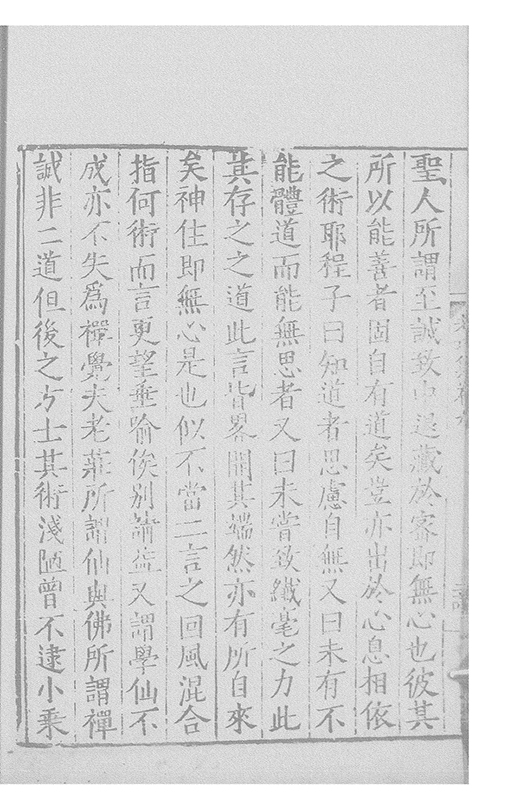 聖人所謂至誠致中退藏於密即無心也彼其
所以能善者固自有道矣豈亦出於心息相依
之術耶程子曰知道者思慮自無又曰未有不
能體道而能無思者又曰未嘗致纖毫之力此
其存之之道此言皆畧開其端然亦有所自來
矣神住即無心是也似不當二言之回風混合
指何術而言更望垂喻俟別請益又謂學仙不
成亦不失為禪覺夫老莊所謂仙與佛所謂禪
誠非二道但後之方士其術淺陋曾不逮小乘